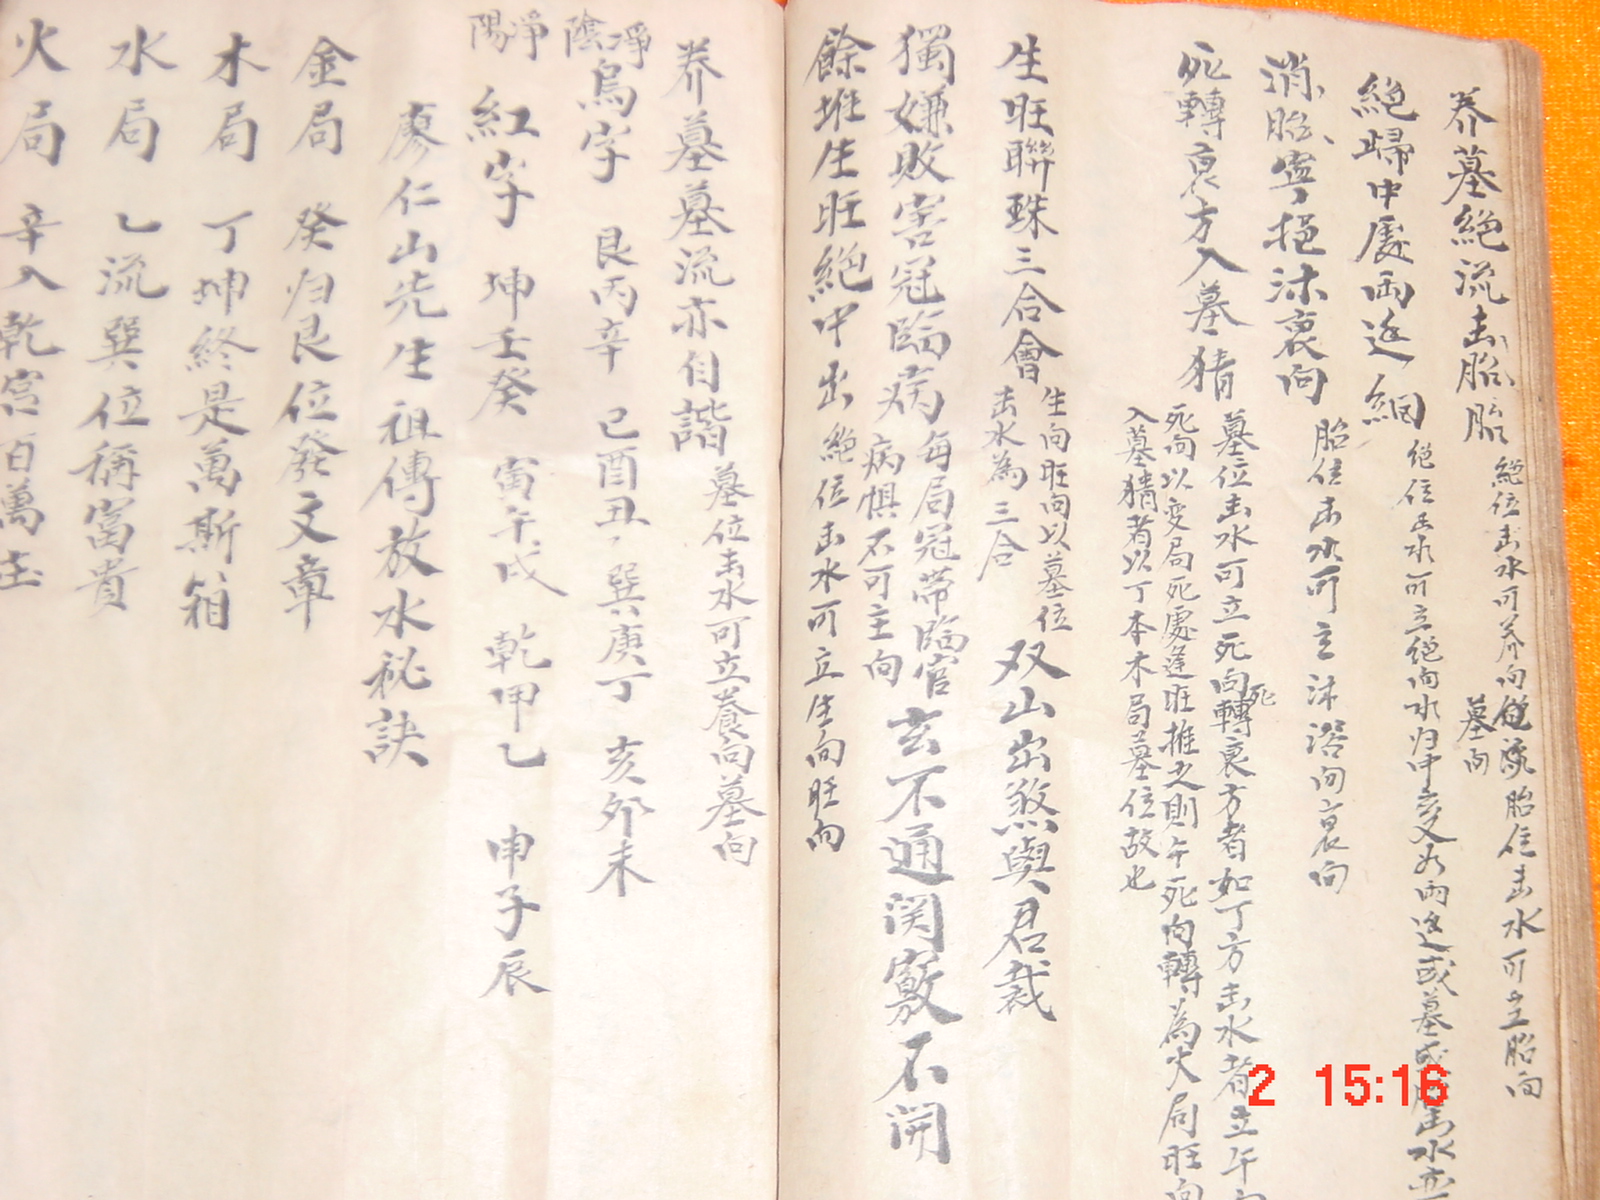 养墓絕流去胎胎
絕位去水可养向絕流胎位去水可立胎向
墓向
絕歸中處両廷網
絕位去水可立絕向水归中
消胎寧挹沐衰向
胎位去水可立沐浴向衰向
死轉衰方入墓猜
墓位去水可立死向轉衰方者如丁方去水者立午
死
死向以变局死處逢旺推之則午死向轉為火局旺向
入墓猜者以丁本木局墓位故也
生旺聯珠三合會
生向旺向以墓位
去水為三合
双山出煞與君裁
獨嫌敗害冠臨病
每局冠帶臨官
病惧不可主向
玄不通関竅不開
餘堆生旺絕中出
絕位去水可立生向旺向
养墓墓流亦自諧
墓位去水可立養向墓向
淨陰
烏字 艮丙辛 巳酉丑 巽庚丁 亥卯未
淨陽
紅字 坤壬癸 寅午戌 乾甲乙 申子辰
廖仁山先生祖傳放水秘訣
金局 癸归艮位發文章
木局 丁坤終是萬斯箱
水局 乙流巽位稱富貴
火局 辛入乾宫百萬庄
2 15:16